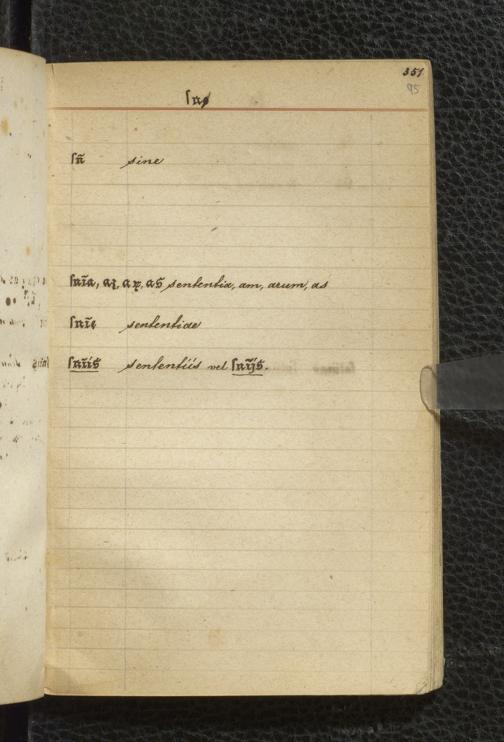 351
95
sn̄ sine
snīa, sententia, am, arum, as
snīe sententiae
snīis sententiis vel snījs.